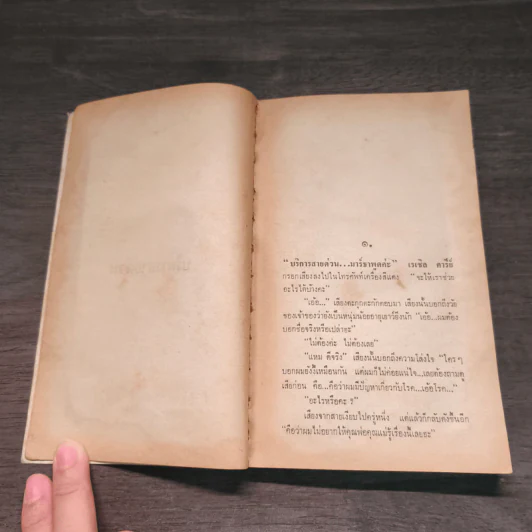 ๑.
"บริการสายด่วน...มาร์ธาพูดค่ะ" เรเชิล ดารีย์
กรอกเสียงลงไปในโทรศัพท์เครื่องสีแดง "จะให้เราช่วย
อะไรได้บ้างคะ"
"เอ้อ..." เสียงตะกุกตะกักตอบมา เสียงนั้นบอกถึงวัย
ของเจ้าของว่ายังเป็นหนุ่มน้อยอายุเยาว์ยิ่งนัก "เอ้อ...ผมต้อง
บอกชื่อจริงหรือเปล่าฮะ"
"ไม่ต้องค่ะ ไม่ต้องเลย"
"แหม ดีจริง" เสียงนั้นบอกถึงความโล่งใจ "ใครๆ
บอกผมยังงี้เหมือนกัน แต่ผมก็ไม่ค่อยแน่ใจ...เลยต้องถามดู
เสียก่อน คือ...คือว่าผมมีปัญหาเกี่ยวกับโรค...เอ้อโรค..."
"อะไรหรือคะ ?
เสียงจากสายเงียบไปครู่หนึ่ง แต่แล้วก็กลับดังขึ้นอีก
"คือว่าผมไม่อยากให้คุณพ่อคุณแม่รู้เรื่องนี้เลยฮะ"